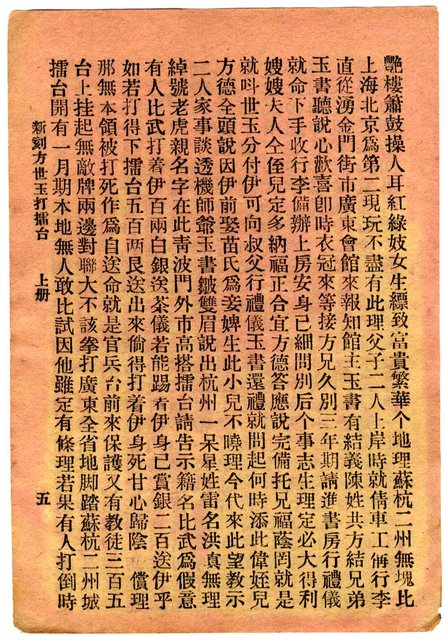 艷樓簫鼓操人耳紅綠妓女生縹致富貴繁華个地理蘇杭二州無塊比
上海北京為第二現玩不盡有此理父子二人上岸時就倩車工俩行李
直從湧金門街市廣東會館來報知館主玉書有結義陳姓共方結兄弟
玉書聽說心歡喜卽時衣冠來等接方兄久別三年期請進書房行禮儀
就命下手收行李備辦上房安身己細問別后个事志生理定必大得利
嫂嫂大人仝侄兒定多納福正合宜方德答應說完備托兄福蔭罔就是
就呌世玉分付伊可向叔父行禮儀玉書還禮就問起何時添此偉姪兒
方德全頭說因伊前娶苗氏為妾婢生此小兒不曉理今代來此望教示
二人家事談透機師爺玉書皺雙眉說出杭州一呆星姓雷名洪真無理
綽號老虎親名字在此青波門外市高搭擂台請告示籍名比武為假意
有人比武打着伊百兩白銀送茶儀若能踢着伊身己賞銀二百送伊乎
如若打得下擂台五百两艮送出來倘得打着伊身死甘心歸陰 償理
那無本領被打死作為自送命就是官兵台前來保護又有教徒三百五
台上挂起無敵牌兩邊對聯大不該拳打廣東全省地脚踏蘇杭二州城
擂台開有一月期本地無人敢比試因他雖定有條理若果有人打倒時
新刻方世玉打擂台 上册 五